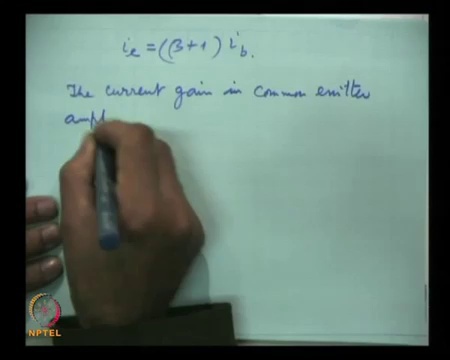 i_e = (β+1) i_b.
The current gain in common emitter
ampl
NPTEL